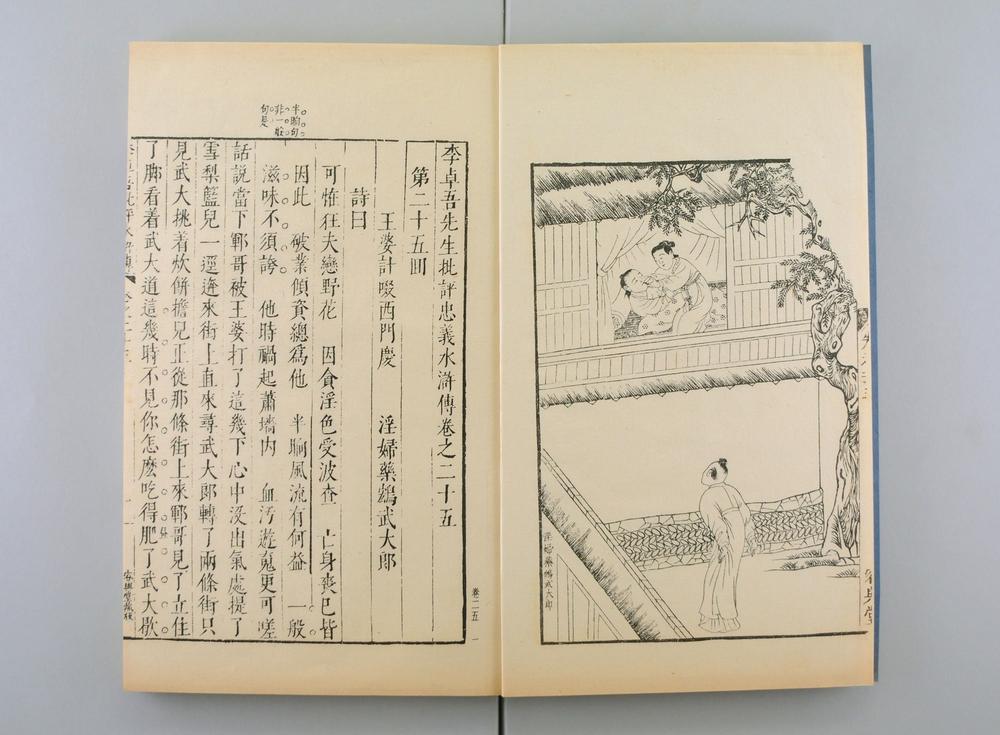 李卓吾先生批評忠義水滸傳卷之二十五
第二十五囘
王婆計啜西門慶 淫婦藥鴆武大郎
詩曰
可怪狂夫戀野花 因貪淫色受波查 亡身喪己皆
因此 破業傾資總爲他 半晌風流有何益 一般
滋味不須誇 他時禍起蕭墻内 血汚遊魂更可嗟
話說當下鄆哥被王婆打了這幾下心中没出氣處提了
雪梨籃兒一逕逩來街上直來尋武大郎轉了兩條街只
見武大挑着炊餅擔兒正從那條街上來鄆哥見了立住
了脚看着武大道這幾時不見你怎麽吃得肥了武大歇
半晌句
非一般
句是
卷二五 一
容與堂藏板
淫婦藥鴆武大郎
容與堂